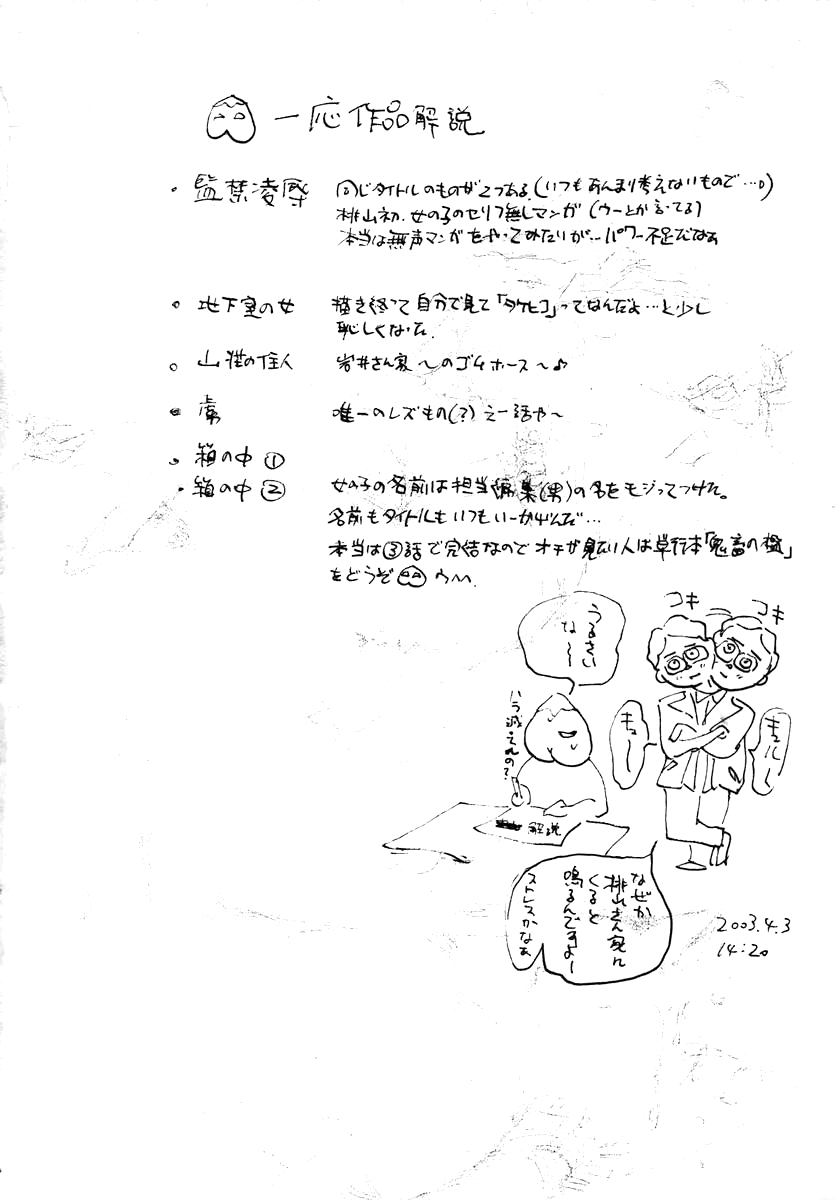 一応作品解説
・監禁凌辱 同じタイトルのものが2つある。(いつもあんまり考えないもので…。)
桃山初、女の子のセリフ無しマンガ(ウーとか言ってる)
本当は無声マンガをやってみたいが…パワー不足だなぁ
○地下室の女 描き終って自分で見て「タケヒコ」ってなんだよ…と少し
恥しくなった。
○山荘の住人 岩井さん家〜のゴムホース〜♪
唯一のレズもの(?)えー話や〜
・箱の中①
・箱の中② 女の子の名前は担当編集(男)の名をモジってつけた。
名前もタイトルもいつもいーかげんだ…
本当は③話で完結なのでオチが見たい人は単行本「鬼畜の檻」
をどうぞ
コキ
コキ
うるさい
な〜〜
ハラ減ってんの?
キュー
キュルル
解説
なぜか
桃山さん家に
くると
鳴るんですよー
ストレスかなぁ
2003.4.3
14:20